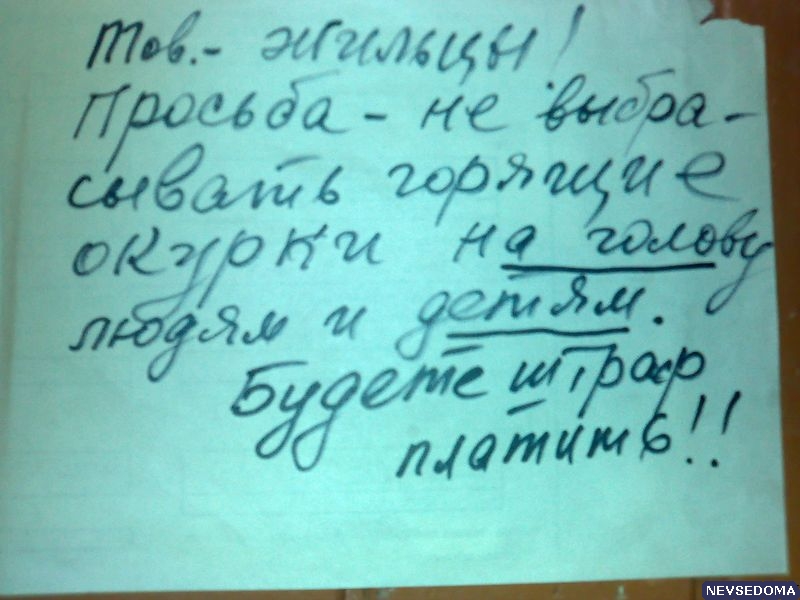 Тов.- жильцы!
Просьба - не выбра-
сывать горящие
окурки на голову
людям и детям.
Будете штраф
платить!!
NEVSEDOMA